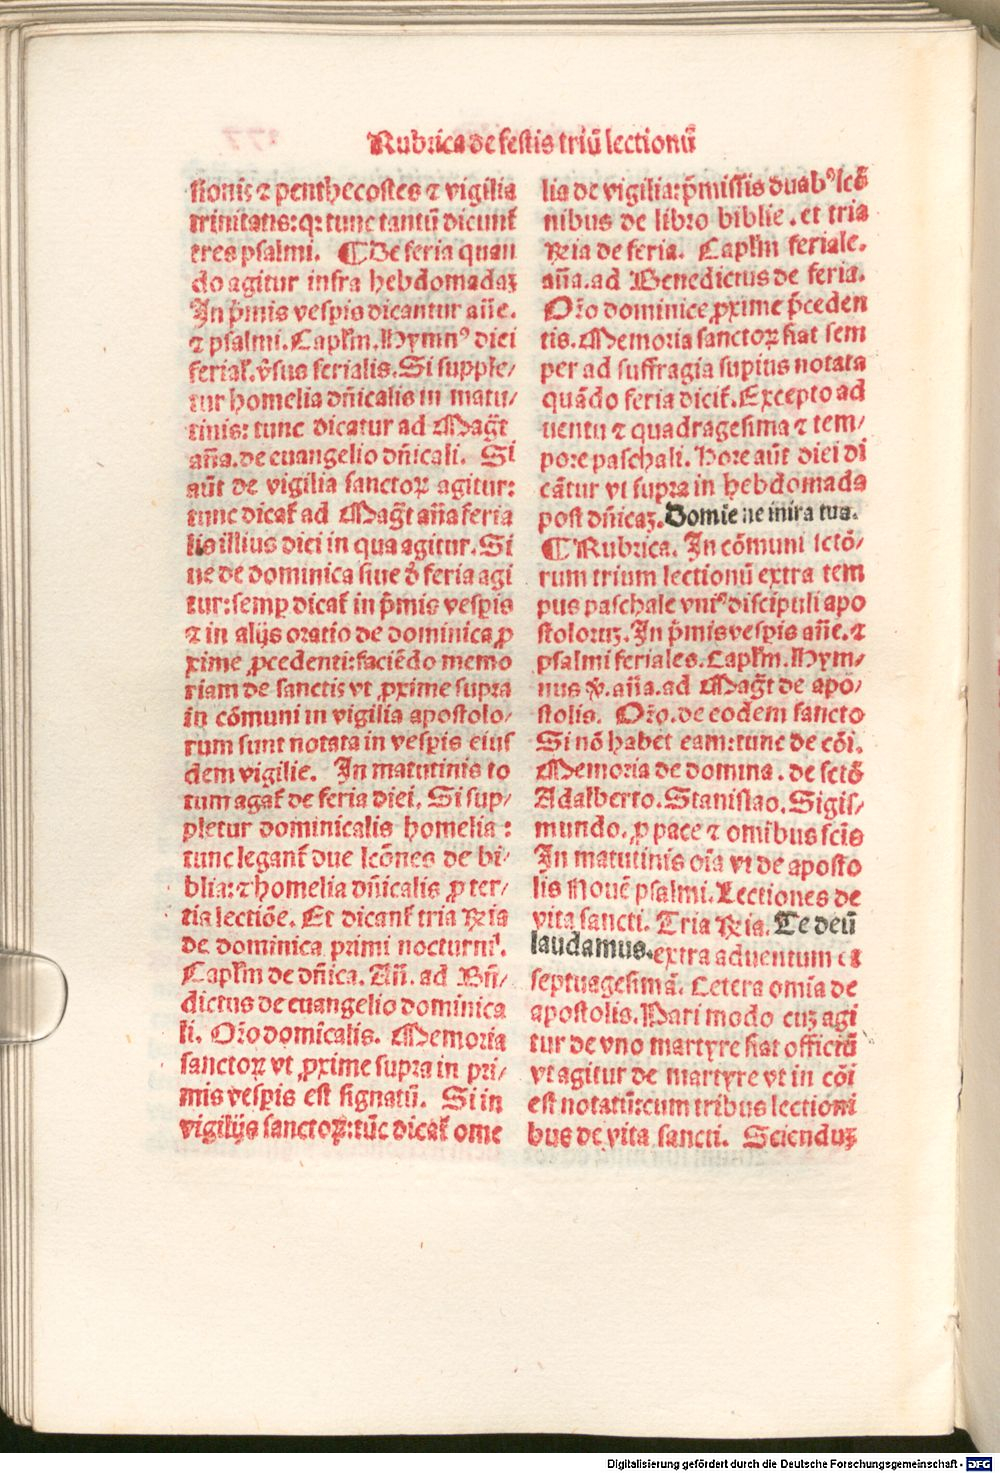 Rubrica de festis triū lectionū
sionis ⁊ penthecostes ⁊ vigilia
trinitatis: q: tunc tantū dicunt̄
tres psalmi. ¶ De feria quan
do agitur infra hebdomadaꝫ
In p̄mis vesp̄is dicantur an̄e.
⁊ psalmi. Capl̄m. Hymnꝰ diei
ferial̄. v̄sus ferialis. Si supple⸗
tur homelia dn̄icalis in matu⸗
tinis: tunc dicatur ad Maḡt
an̄a. de euangelio dn̄icali. Si
aūt de vigilia sanctoꝝ agitur:
tunc dicat̄ ad Maḡt an̄a feria
lis illius diei in qua agitur. Si
ue de dominica siue d̄ feria agi
tur: semꝑ dicat̄ in p̄mis vesp̄is
⁊ in alijs oratio de dominica ꝓ
xime ꝓcedenti: faciēdo memo
riam de sanctis vt ꝓxime supra
in cōmuni in vigilia apostolo⸗
rum sunt notata in vesp̄is eius
dem vigilie. In matutinis to
tum agat̄ de feria diei. Si sup⸗
pletur dominicalis homelia:
tunc legant̄ due lcōnes de bi⸗
blia: ⁊ homelia dn̄icalis ꝓ ter⸗
tia lectiōe. Et dicant̄ tria Rn̄ia
de dominica primi nocturni.
Capl̄m de dn̄ica. An̄. ad Bn̄⸗
dictus de euangelio dominica
li. Orō domicalis. Memoria
sanctoꝝ vt ꝓxime supra in pri⸗
mis vesp̄is est signatū. Si in
vigilijs sanctoꝝ: tūc dicat̄ ome
lia de vigilia: p̄missis duabꝰ lcō
nibus de libro biblie. et tria
Rn̄ia de feria. Capl̄m feriale.
an̄a. ad Benedictus de feria.
Orō dominice ꝓxime p̄ceden
tis. Memoria sanctoꝝ fiat sem
per ad suffragia supius notata
quādo feria dicit̄. Excepto ad
uentu ⁊ quadragesima ⁊ tem⸗
pore paschali. Hore aūt diei di
cātur vt supra in hebdomada
post dn̄icaꝫ. Domie ne in ira tua.
¶ Rubrica. In cōmuni sctō⸗
rum trium lectionū extra tem
pus paschale vniꝰ discipuli apo
stoloruꝫ. In p̄mis vesp̄is an̄e. ⁊
psalmi feriales. Capl̄m. Hym⸗
nus v̄. an̄a. ad Maḡt de apo⸗
stolis. Orō. de eodem sancto
Si nō habet eam: tunc de cōi.
Memoria de domina. de sctō
Adalberto. Stanislao. Sigis⸗
mundo. ꝓ pace ⁊ omibus scīs
In matutinis oīa vt de aposto
lis Nouē psalmi. Lectiones de
vita sancti. Tria Rn̄ia. Te deū
laudamus. extra aduentum et
septuagesimā. Cetera omīa de
apostolis. Pari modo cuꝫ agi
tur de vno martyre fiat officiū
vt agitur de martyre vt in cōi
est notatū: cum tribus lectioni
bus de vita sancti. Scienduꝫ
Digitalisierung gefördert durch die Deutsche Forschungsgemeinschaft - DFG